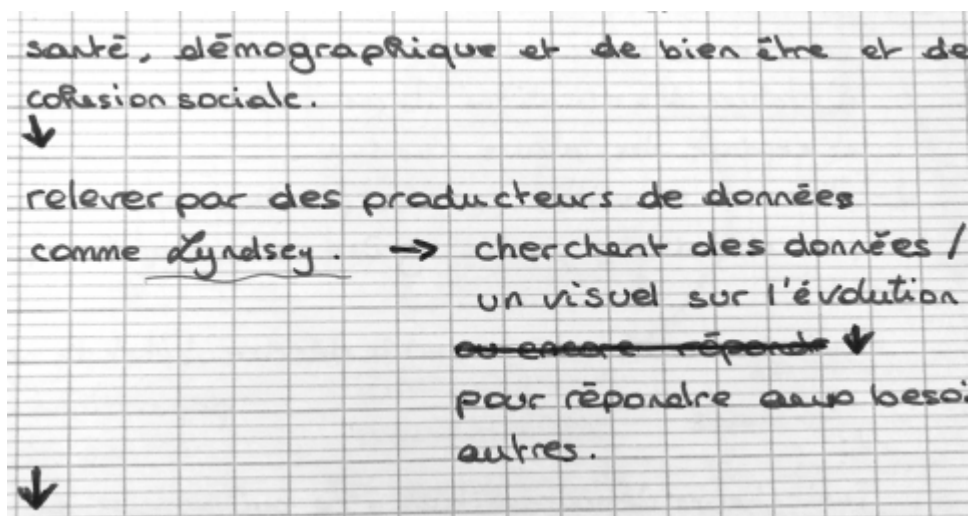 santé, démographique et de bien être et de
cohésion sociale.
↓
relever par des producteurs de données
comme Lyndsey. → cherchent des données /
un visuel sur l'évolution
ou encore répondr ↓
pour répondre aux besoi
autres.
↓